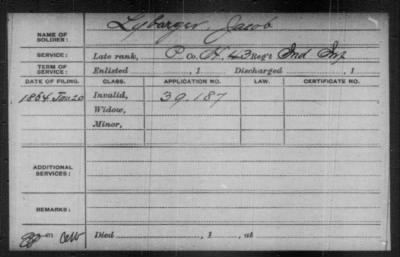 NAME OF SOLDIER: Lybarger, Jacob
SERVICE: Late rank, P. Co. H, 43 Reg't Ind Inf
TERM OF SERVICE: Enlisted , 1 Discharged , 1
DATE OF FILING. CLASS. APPLICATION NO. LAW. CERTIFICATE NO.
1864 Jan 20 Invalid, 39.187
Widow,
Minor,
ADDITIONAL SERVICES:
REMARKS:
Died , 1 , at